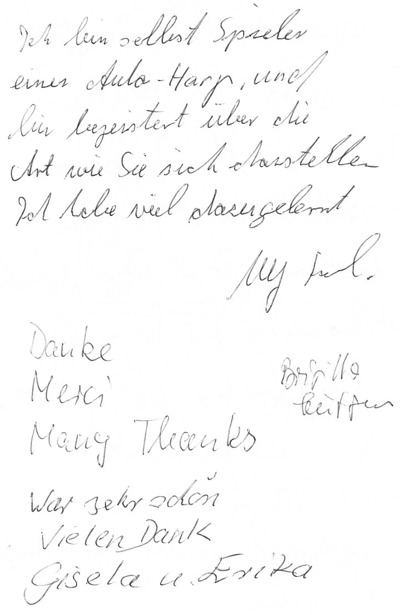 Ich bin selbst Spieler
einer Auto-Harp, und
bin begeistert über die
Art wie Sie sich darstellen
Ich habe viel dazugelernt
Danke
Merci
Many Thanks
Brigitte
War sehr schön
Vielen Dank
Gisela u. Erika